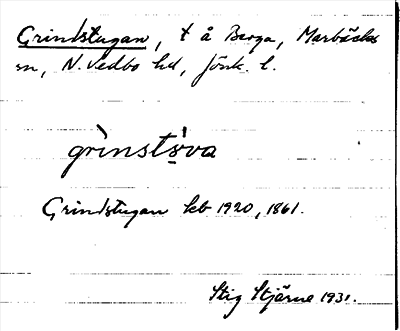 Grindstugan, t å Berga, Marbäcks
sn, N. Vedbo hd, Jönk. l.
grìnstø̀va
Grindstugan kb 1920, 1861.
Stig Stjärne 1931.